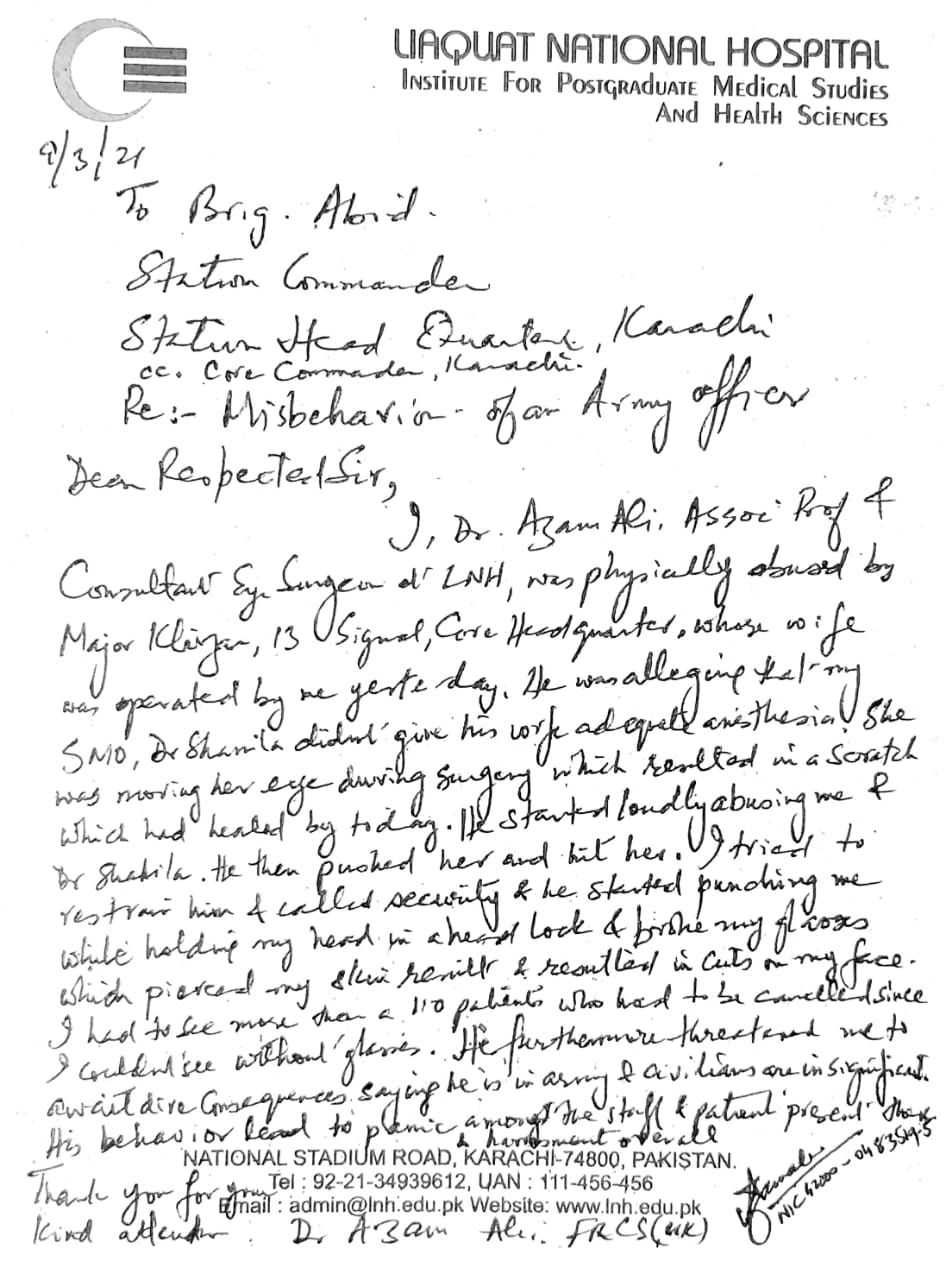 LIAQUAT NATIONAL HOSPITAL
INSTITUTE FOR POSTGRADUATE MEDICAL STUDIES
AND HEALTH SCIENCES
9/3/21
To Brig. Abid.
Station Commander
Station Head Quarters, Karachi
cc. Core Commader, Karachi.
Re:- Misbehavior of an Army officer
Dear Respected Sir,
I, Dr. Azam Ali. Assoc Prof &
Consultant Eye Surgeon at LNH, was physically abused by
Major 13 Signal, Core Headquarter, whose wife
was operated by me yesterday. He was alleging that my
SMO, Dr Shamila didnt give his wife adequate anesthesia. She
was moving her eye during surgery which resulted in a scratch
which had healed by today. He started loudly abusing me &
Dr Shakila. He then pushed her and hit her. I tried to
restrain him & called security & he started punching me
while holding my head in a head lock & broke my glasses
which pierced my skin result & resulted in cuts on my face.
I had to see more than a 110 patients who had to be cancelled since
I couldn't see without glasses. He furthermore threatened me to
await dire consequences saying he is in army & civilians are insignificant.
His behavior lead to panic amongst the staff & patient present there
& harrasment overall
NATIONAL STADIUM ROAD, KARACHI-74800, PAKISTAN.
Tel : 92-21-34939612, UAN : 111-456-456
Thank you for your
Email : admin@lnh.edu.pk Website: www.lnh.edu.pk
NIC 42000-0483519-5
Kind attention. Dr Azam Ali. FRCS(UK)